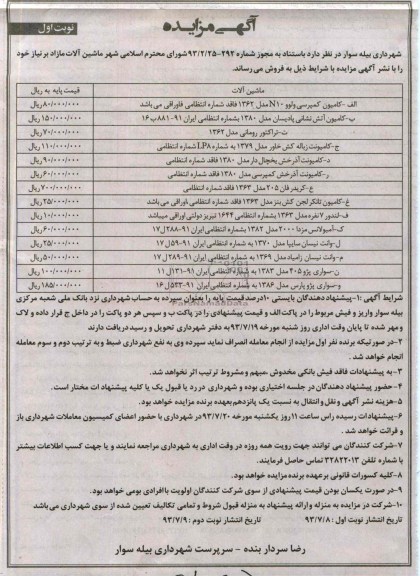 آگهی مزایده
نوبت اول
شهرداری بیله سوار در نظر دارد باستناد به مجوز شماره ۲۹۴-۹۳/۲/۲۵ شورای محترم اسلامی شهر ماشین آلات مازاد بر نیاز خود
را با نشر آگهی مزایده با شرایط ذیل به فروش می‌رساند.
ماشین آلات قیمت پایه به ریال
الف -کامیون کمپرسی ولوو N۱۰ مدل ۱۳۶۲ فاقد شماره انتظامی فاوراقی می باشد ۸۰/۰۰۰/۰۰۰ ریال
ب-کامیون آتش نشانی پادیسان مدل ۱۳۸۰ بشماره انتظامی ایران ۹۱-۸۸۱ب۱۶ ۱۵۰/۰۰۰/۰۰۰ ریال
ت-تراکتور رومانی مدل ۱۳۶۲ ۷۰/۰۰۰/۰۰۰ ریال
ج-کامیونت زباله کش خاور مدل ۱۳۷۹ به شماره LP۸ شماره انتظامی ۱۱۰/۰۰۰/۰۰۰ ریال
د-کامیونت آذرخش یخچال دار مدل ۱۳۸۰ فاقد شماره انتظامی ۹۰/۰۰۰/۰۰۰ ریال
ر-کامیونت آذرخش کمپرسی مدل ۱۳۸۰ فاقد شماره انتظامی ۶۰/۰۰۰/۰۰۰ ریال
ع-گریدر فان ۲۰۵ مدل ۱۳۶۳ فاقد شماره انتظامی ۷۰۰/۰۰۰/۰۰۰ ریال
غ-کامیون تانکر لجن کش بنز مدل ۱۳۶۳ فاقد شماره انتظامی فاوراقی می باشد ۲۵/۰۰۰/۰۰۰ ریال
ف-لندور ۷ نفره مدل ۱۳۶۳ بشماره انتظامی ۱۶۴۴ تبریز دولتی اوراقی میباشد ۱۰/۰۰۰/۰۰۰ ریال
ک-آمبولانس مزدا ۲۰۰۰ مدل ۱۳۸۲ بشماره انتظامی ایران ۹۱-۲۸۸ل۱۷ ۶۰/۰۰۰/۰۰۰ ریال
ل-وانت نیسان سایپا مدل ۱۳۷۰ به شماره انتظامی ایران ۹۱-۵۹ل۱۷ ۲۵/۰۰۰/۰۰۰ ریال
م-وانت نیسان زامیاد مدل ۱۳۶۹ به شماره انتظامی ایران ۹۱-۲۸۹ل۱۷ ۵۰/۰۰۰/۰۰۰ ریال
ن-سواری پژو ۴۰۵ مدل ۱۳۸۳ به شماره انتظامی ایران ۹۱-۱۳۱ل۱۱ ۱۰۰/۰۰۰/۰۰۰ ریال
و-سواری پژو پارس مدل ۱۳۸۶ به شماره انتظامی ایران ۹۱-۵۳۳ل۱۶ ۱۸۵/۰۰۰/۰۰۰ ریال
شرایط آگهی :۱-پیشنهاددهندگان بایستی ۱۰درصد قیمت پایه را بعنوان سپرده به حساب شهرداری نزد بانک ملی شعبه مرکزی
بیله سوار واریز و فیش مربوط را در پاکت الف و قیمت پیشنهادی را در پاکت ب و سپس هر دو پاکت را در داخل ج قرار داده و لاک
و مهر شده تا پایان وقت اداری روز شنبه مورخه ۹۳/۷/۱۹ به دفتر شهرداری تحویل و رسید دریافت دارند.
۲-در صورتیکه برنده نفر اول مزایده از انجام معامله انصراف نماید سپرده وی به نفع شهرداری ضبط و به ترتیب دوم و سوم معامله
انجام خواهد شد.
۳-به پیشنهادات فاقد فیش بانکی مخدوش ،مبهم و مشروط ترتیب اثر نخواهد شد.
۴-حضور پیشنهاد دهندگان در جلسه اختیاری بوده و شهرداری در رد یا قبول یک یا کلیه پیشنهاد ات مختار است.
۵-هزینه نشر آگهی و نقل وانتقال به نسبت یک پانزدهم بعهده برنده مزایده خواهد بود.
۶-پیشنهادات رسیده راس ساعت ۱۱ روز یکشنبه مورخه ۹۳/۷/۲۰ در شهرداری با حضور اعضای کمیسیون معاملات شهرداری باز
و قرائت خواهد شد.
۷-شرکت کنندگان می توانند جهت رویت همه روزه در وقت اداری به شهرداری مراجعه نمایند و یا جهت کسب اطلاعات بیشتر
با شماره تلفن ۳۲۸۲۲۰۱۳ تماس حاصل فرمایند.
۸-کلیه کسورات قانونی برعهده برنده مزایده خواهد بود.
۹-در صورت یکسان بودن قیمت پیشنهادی از سوی شرکت کنندگان اولویت با افرادی بومی خواهد بود.
۱۰-شرکت در مزایده به منزله و ارائه پیشنهاد به منزله قبول شروط و تمامی تکالیف تعیین شده از سوی شهرداری می باشد
تاریخ انتشار نوبت اول : ۹۳/۷/۸ تاریخ انتشار نوبت دوم : ۹۳/۷/۹
رضا سردار بنده - سرپرست شهرداری بیله سوار